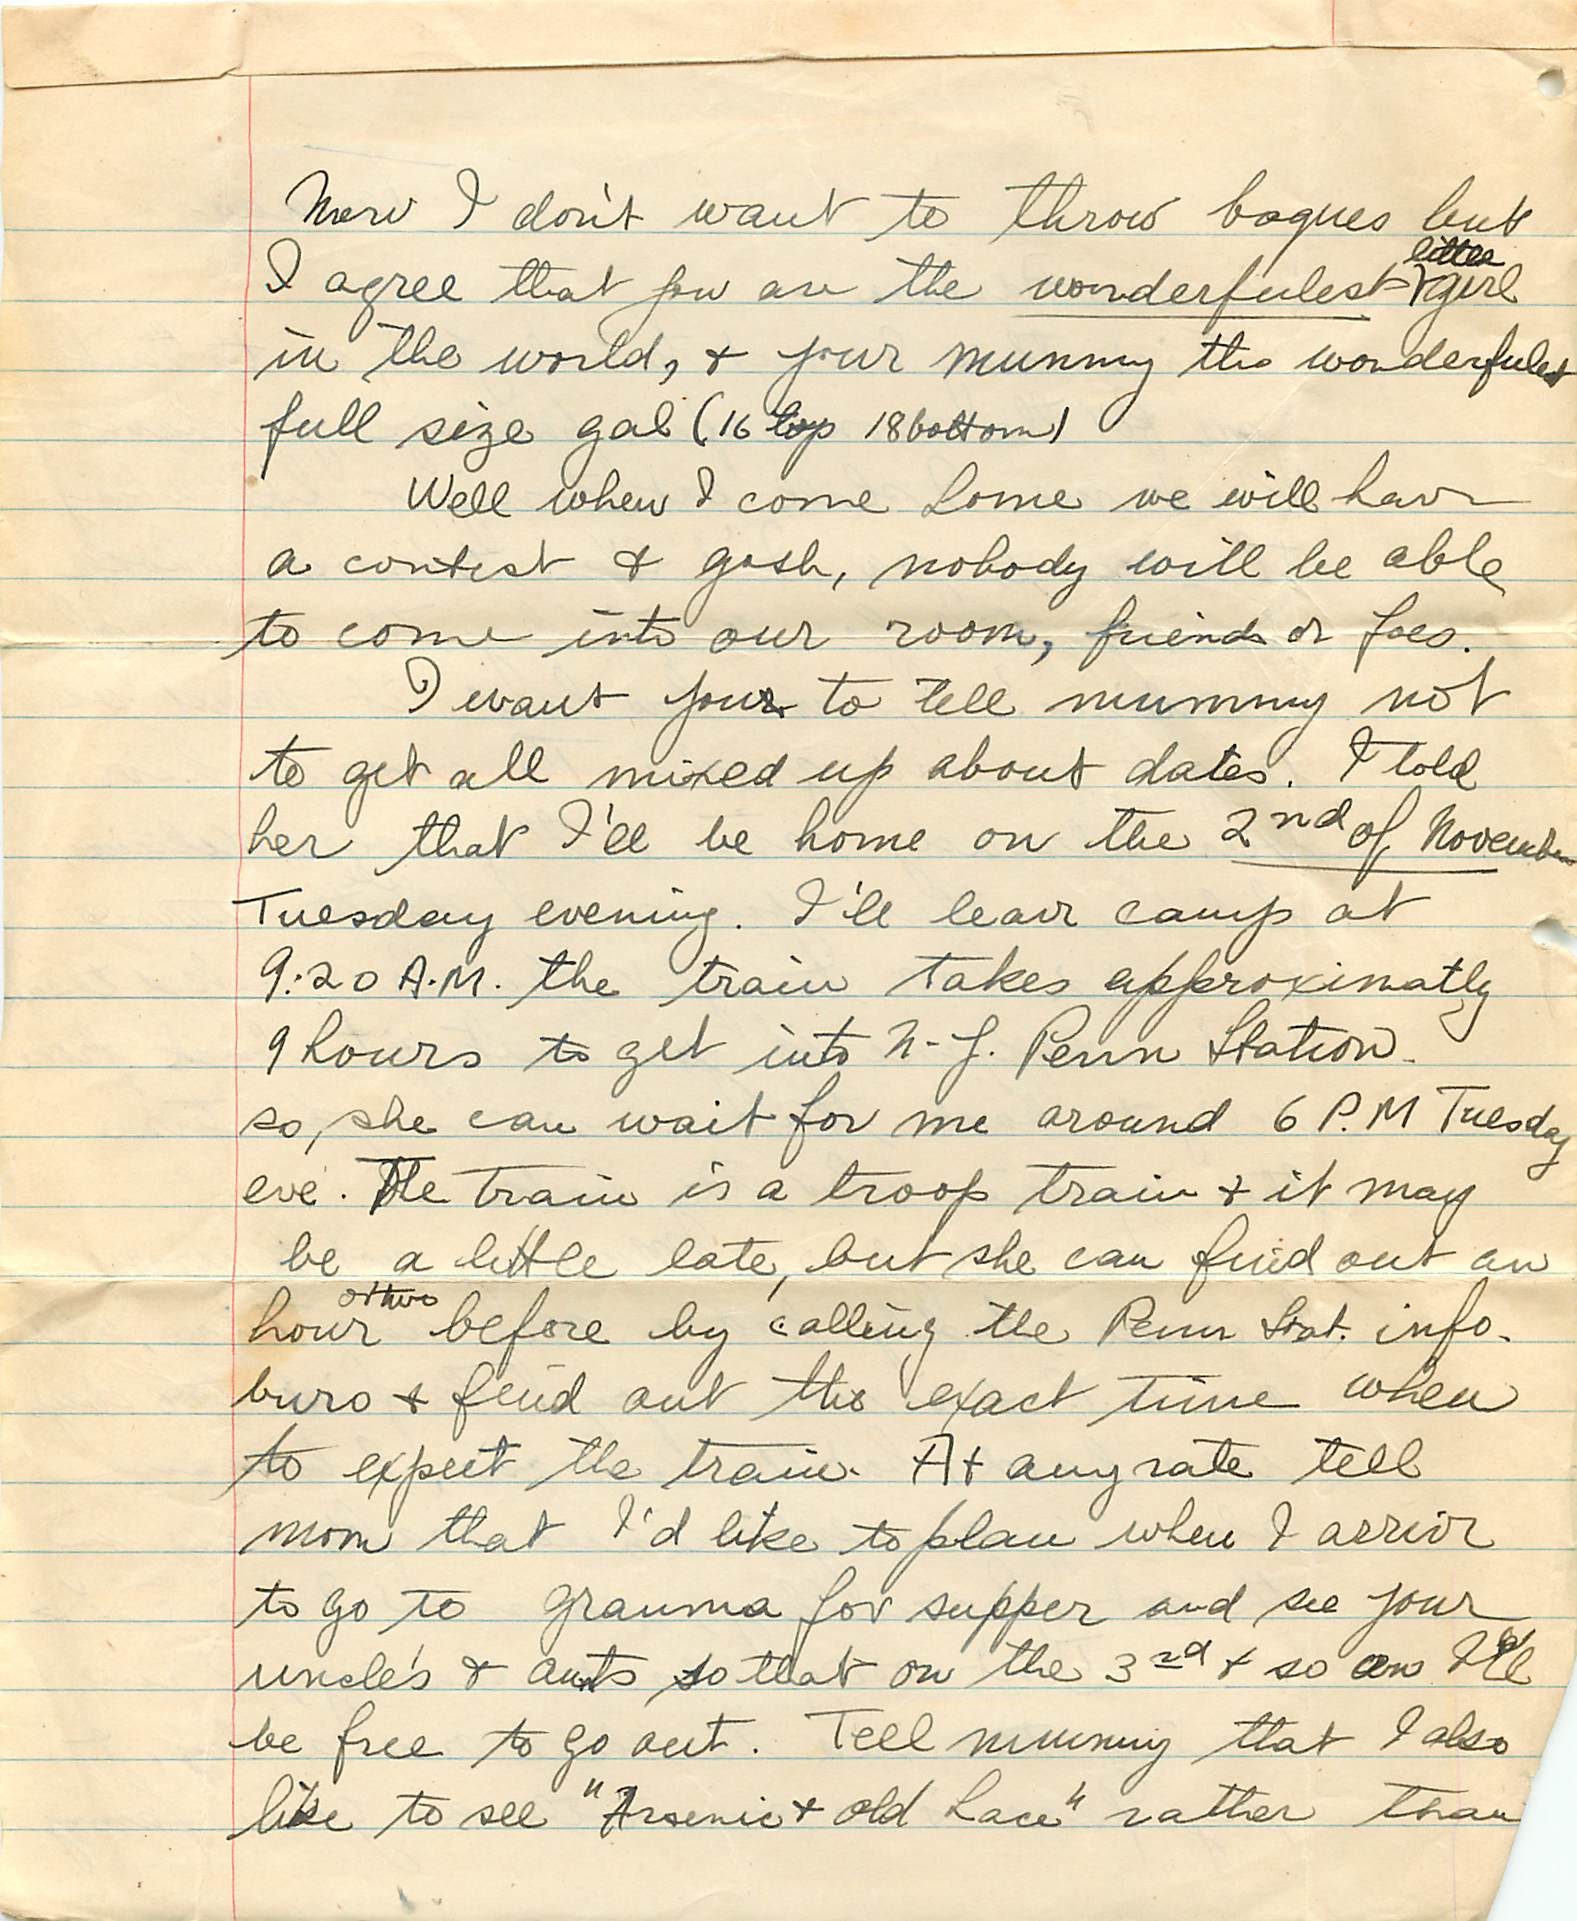 Now I don't want to throw boques but
I agree that you are the wonderfulest little girl
in the world, & your mummy the wonderfulest
full size gal (16 top 18 bottom)
Well when I come home we will have
a contest & gosh, nobody will be able
to come into our room, friends or foes.
I want you to tell mummy not
to get all mixed up about dates. I told
her that I'll be home on the 2nd of November
Tuesday evening. I'll leave camp at
9:20 A.M. the train takes approximatly
9 hours to get into N-Y. Penn Station.
so, she can wait for me around 6 P.M Tuesday
eve. The train is a troop train & it may
be a little late, but she can find out an
hour or two before by calling the Penn Stat. info.
buro & find out the exact time when
to expect the train. At any rate tell
mom that I'd like to plan when I arrive
to go to granma for supper and see your
uncle's & aunts so that on the 3rd & so on I'll
be free to go out. Tell mummy that I also
like to see "Arsenic & old Lace" rather than